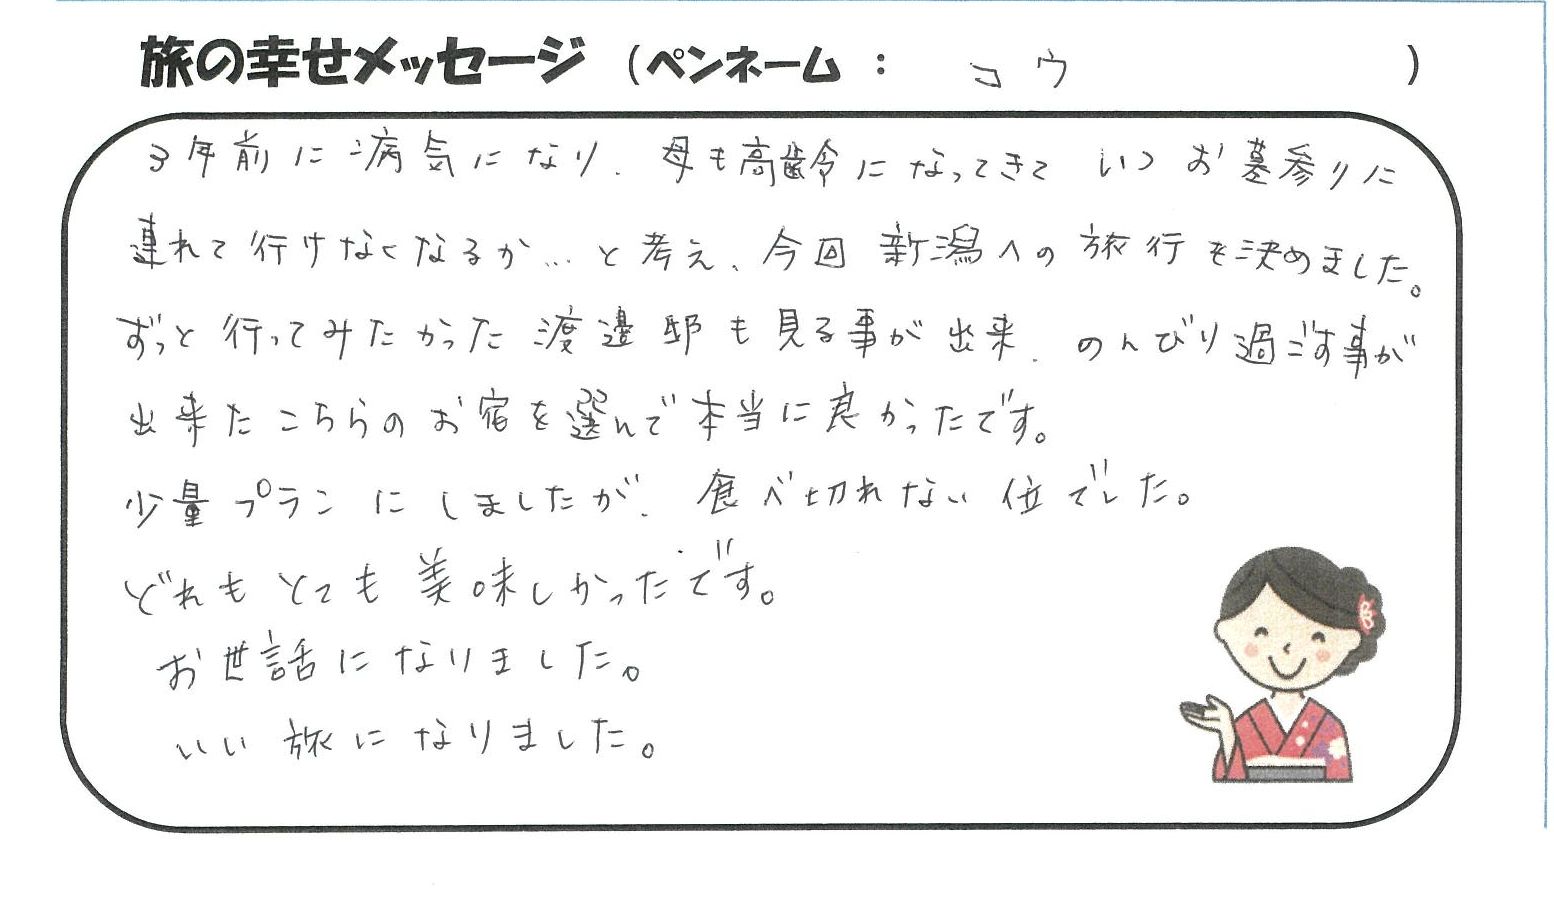 旅の幸せメッセージ （ペンネーム： コウ ）
3年前に病気になり、母も高齢になってきて いつ お墓参りに
連れて行けなくなるか…と考え、今回 新潟への旅行を決めました。
ずっと行ってみたかった渡邊邸も見る事が出来、のんびり過ごす事が
出来たこちらのお宿を選んで本当に良かったです。
少量プランにしましたが、食べ切れない位でした。
どれもとても美味しかったです。
お世話になりました。
いい旅になりました。